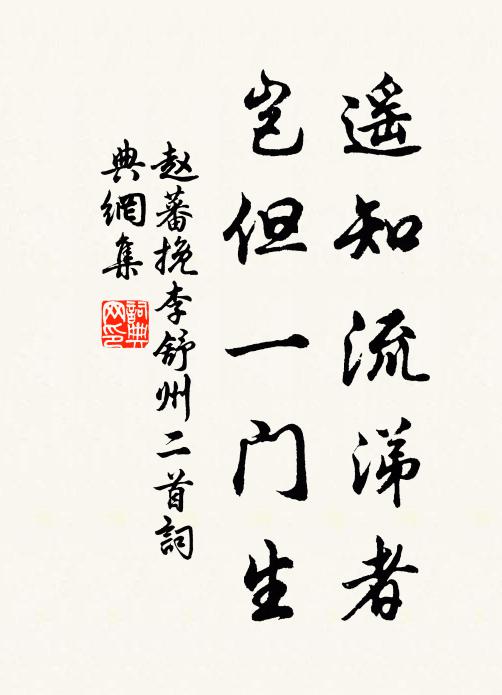 遥知流涕者
岂但一门生
赵蕃挽李舒州二首詞
典網集
詞典
网印